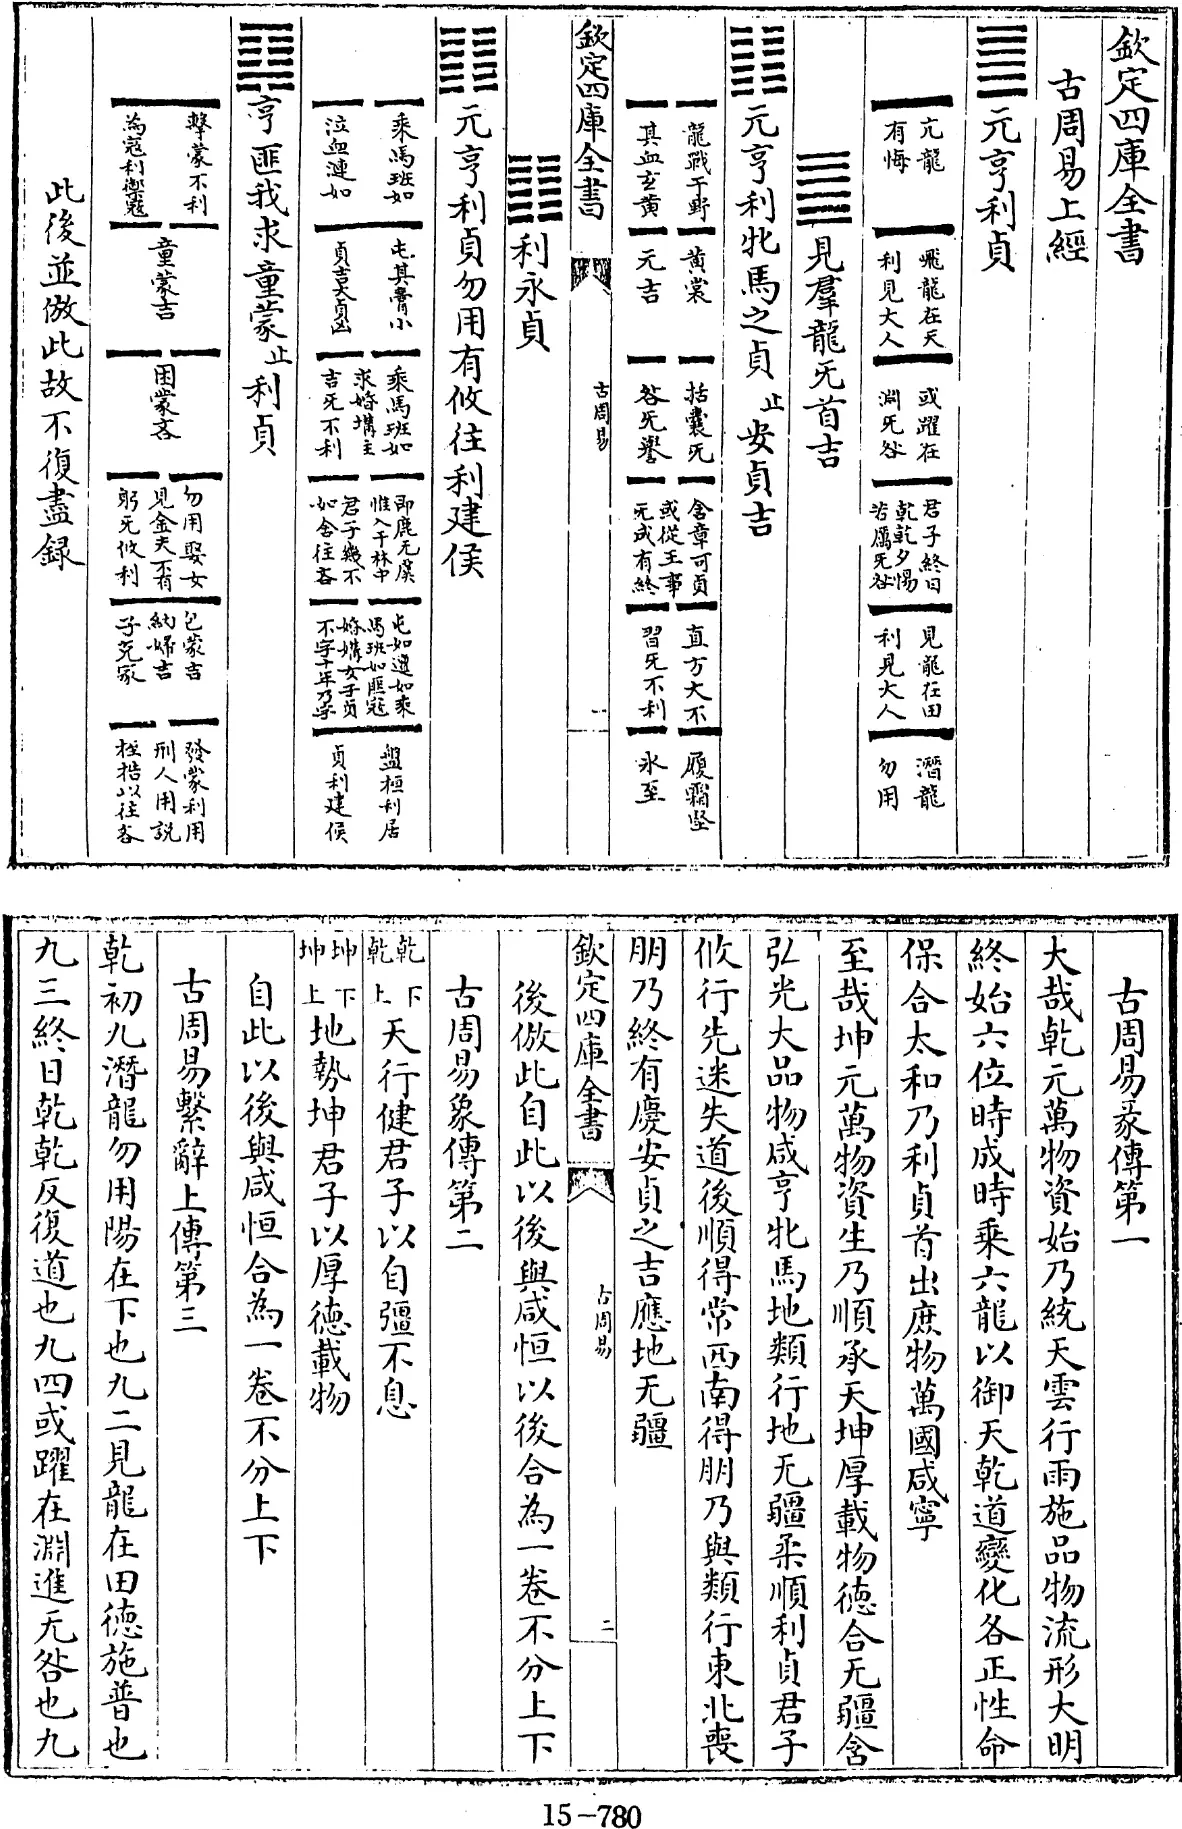 欽定四庫全書
古周易上經
元亨利貞
亢龍
有悔
飛龍在天
利見大人
或躍在
淵无咎
君子終日
乾乾夕惕
若厲无咎
見龍在田
利見大人
潛龍
勿用
見羣龍无首吉
元亨利牝馬之貞止安貞吉
龍戰于野
其血玄黄
黄裳
元吉
括囊无
咎无譽
含章可貞
或從王事
无成有終
直方大不
習无不利
履霜堅
氷至
欽定四庫全書
古周易
一
利永貞
元亨利貞勿用有攸往利建侯
乘馬班如
泣血漣如
屯其膏小
貞吉大貞凶
乘馬班如
求婚媾往
吉无不利
即鹿无虞
惟入于林中
君子幾不
如舍往吝
屯如邅如乘
馬班如匪寇
婚媾女子貞
不字十年乃字
盤桓利居
貞利建侯
亨匪我求童蒙止利貞
擊蒙不利
為寇利禦寇
童蒙吉
困蒙吝
勿用娶女
見金夫不有
躬无攸利
包蒙吉
納婦吉
子克家
發蒙利用
刑人用說
桎梏以往吝
此後並倣此故不復盡録
古周易彖傳第一
大哉乾元萬物資始乃統天雲行雨施品物流形大明
終始六位時成時乘六龍以御天乾道變化各正性命
保合太和乃利貞首出庶物萬國咸寧
至哉坤元萬物資生乃順承天坤厚載物德合无疆含
弘光大品物咸亨牝馬地類行地无疆柔順利貞君子
攸行先迷失道後順得常西南得朋乃與類行東北喪
朋乃終有慶安貞之吉應地无疆
欽定四庫全書
古周易
二
後倣此自此以後與咸恒以後合為一卷不分上下
古周易象傳第二
乾下
乾上
天行健君子以自彊不息
坤下
坤上
地勢坤君子以厚德載物
自此以後與咸恒合為一卷不分上下
古周易繫辭上傳第三
乾初九潛龍勿用陽在下也九二見龍在田德施普也
九三終日乾乾反復道也九四或躍在淵進无咎也九
15-780